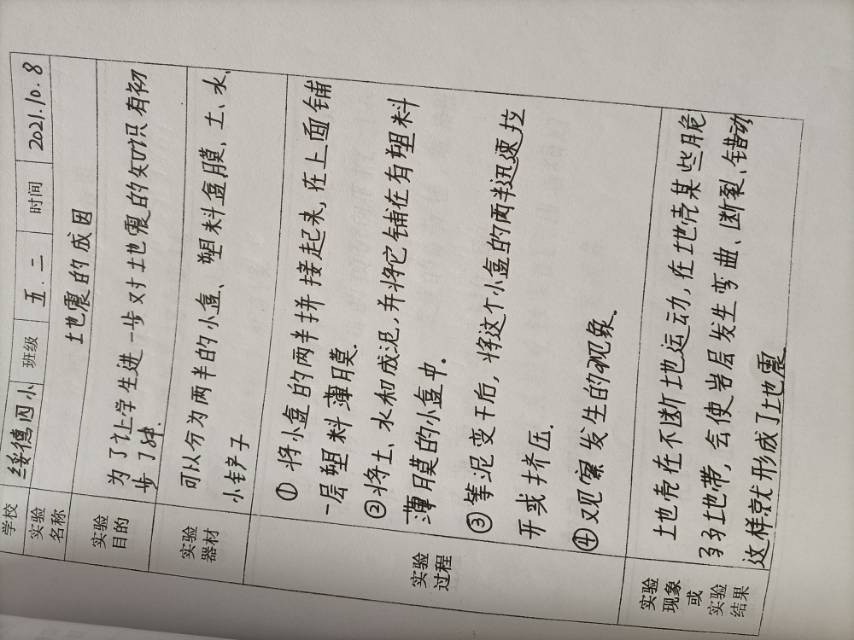 学校 绥德四小 班级 五.二 时间 2021.10.8
实验名称 地震的成因
实验目的 为了让学生进一步对地震的知识有初
步了解.
实验器材 可以分为两半的小盒、塑料盒膜、土、水、
小铲子
实验过程
①将小盒的两半拼接起来,在上面铺
一层塑料薄膜.
②将土、水和成泥,并将它铺在有塑料
薄膜的小盒中.
③等泥变干后,将这个小盒的两半迅速拉
开或挤压.
④观察发生的现象.
实验现象或实验结果
地壳在不断地运动,在地壳某些脆
弱地带,会使岩层发生弯曲、断裂、错动
这样就形成了地震.